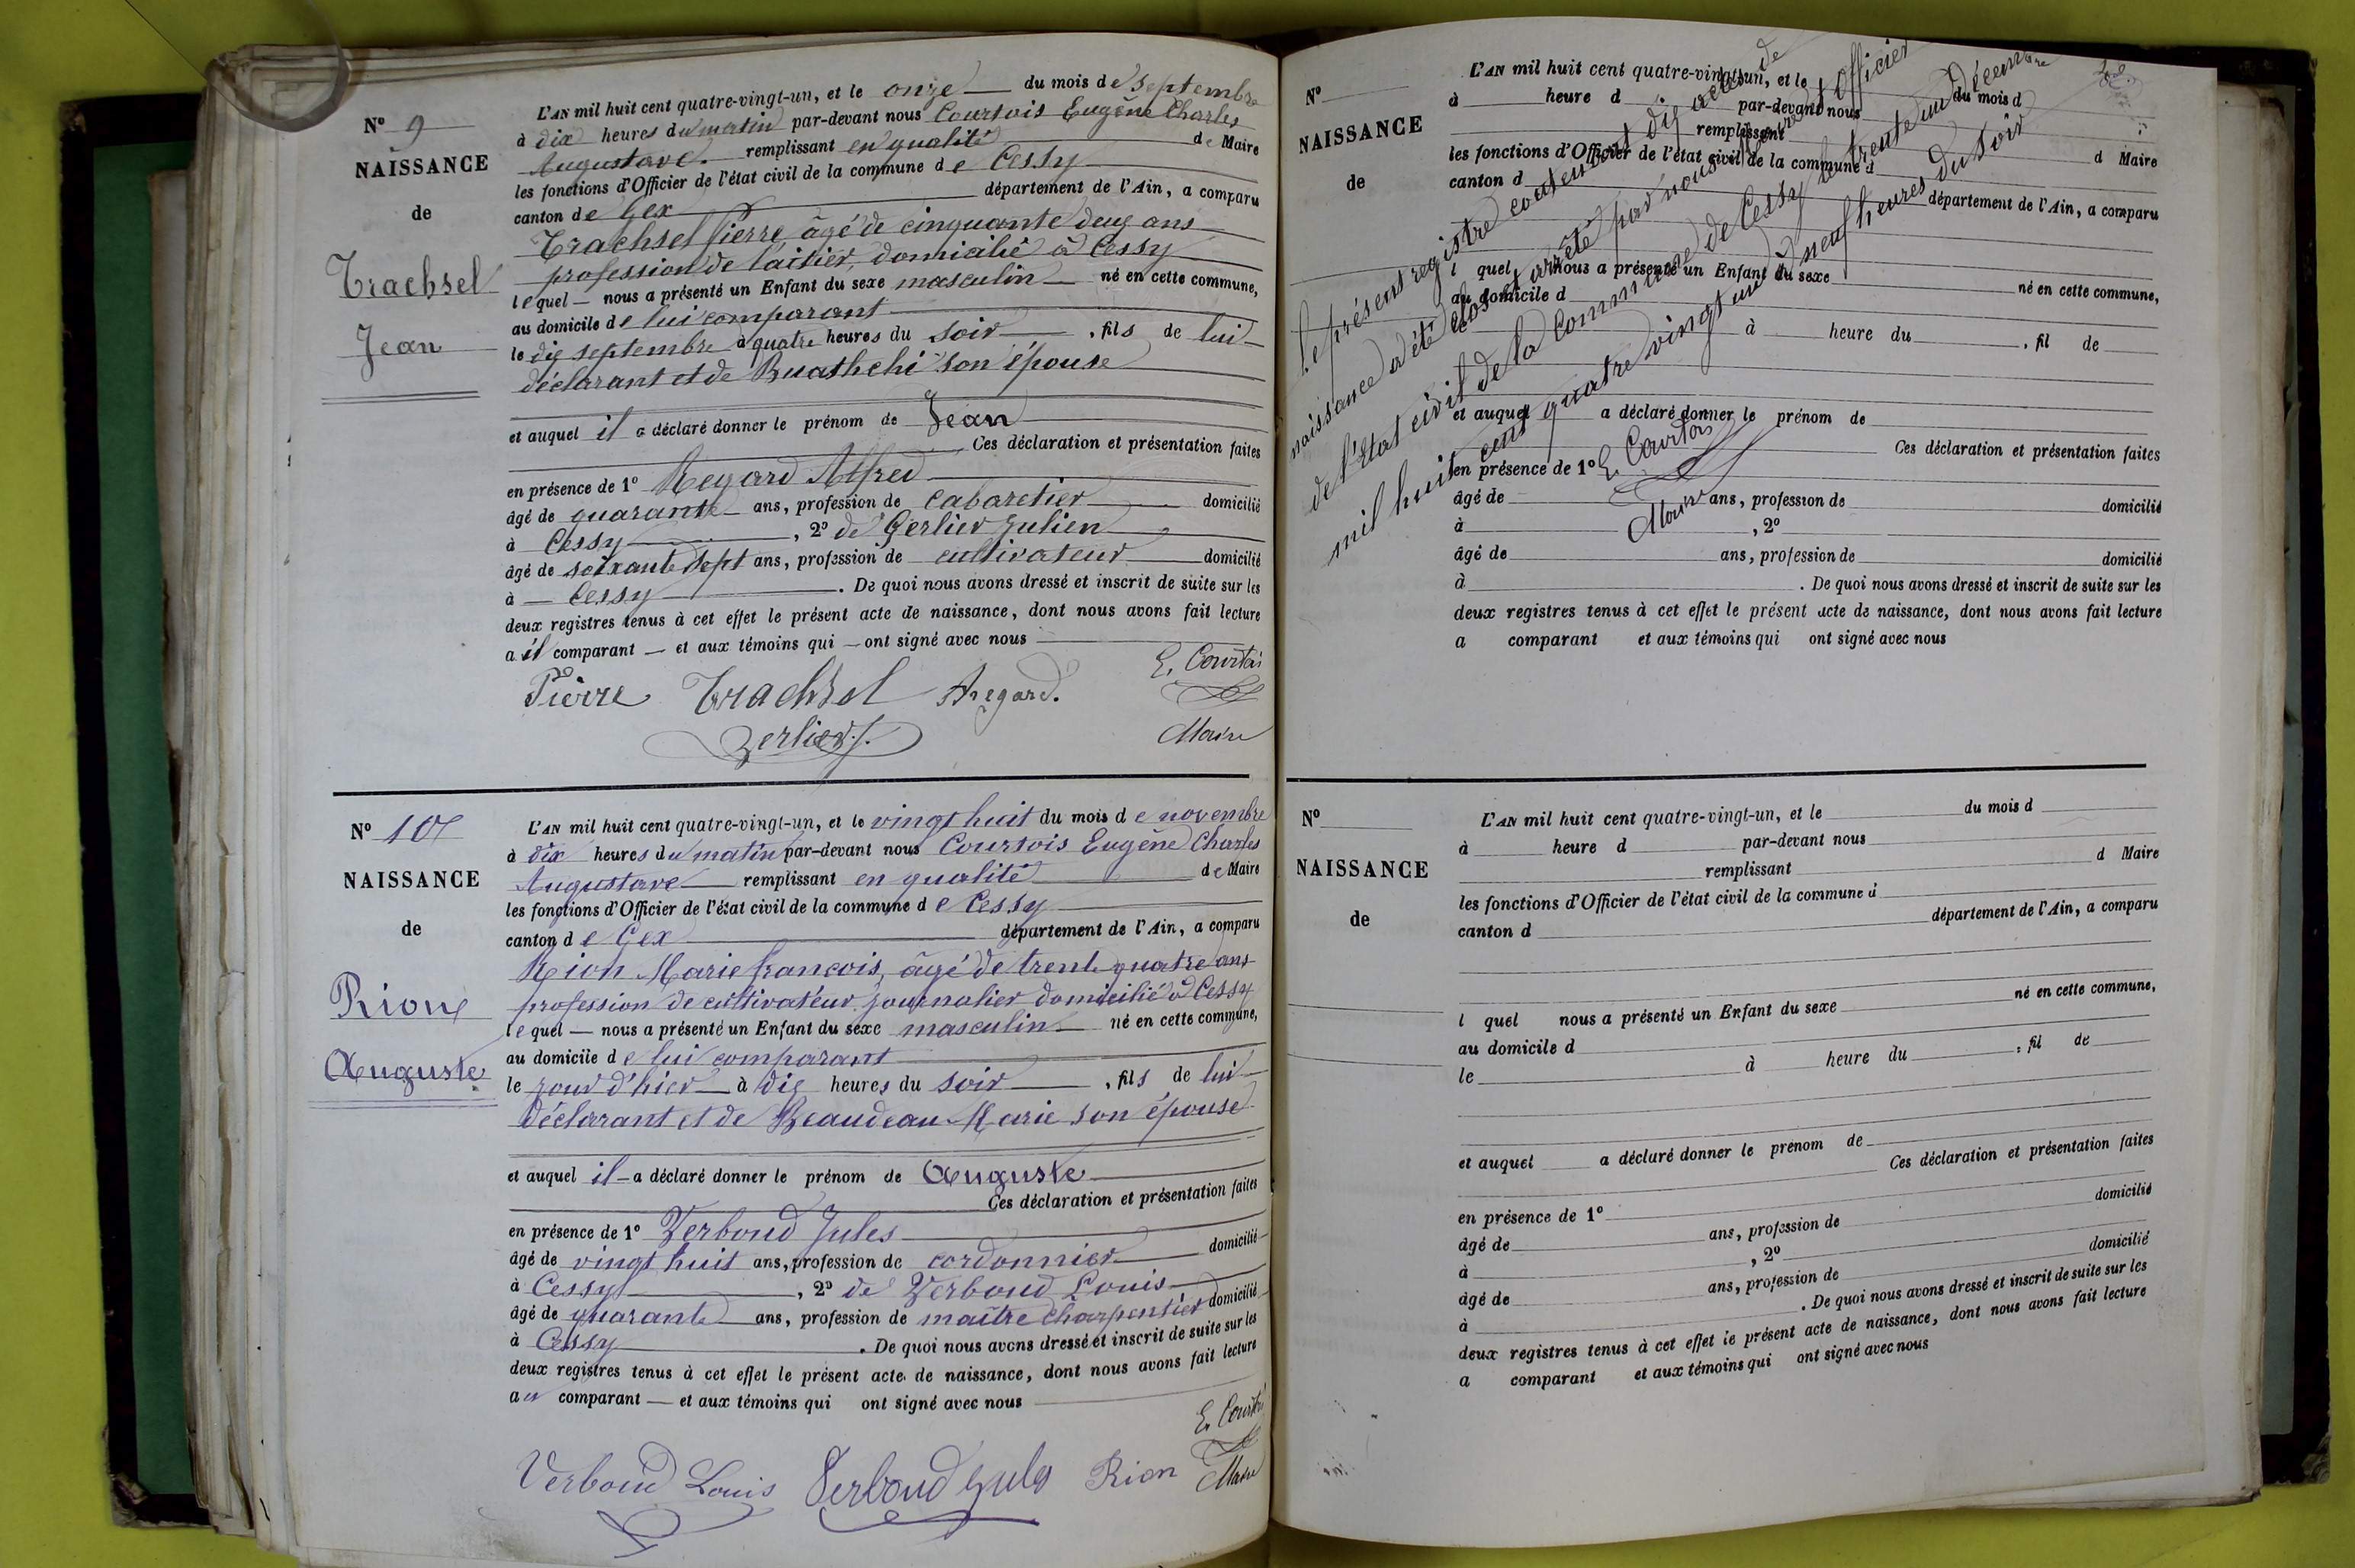 N° 9
NAISSANCE
de
Trachsel
Jean
L'AN mil huit cent quatre-vingt-un, et le onze du mois de septembre
à dix heures du matin par-devant nous Courtois Eugène Charles
Augustave. remplissant en qualité de Maire
les fonctions d'Officier de l'état civil de la commune de Cessy
canton de Gex département de l'Ain, a comparu
Trachsel Pierre âgé de cinquante deux ans
profession de laitier, domicilié à Cessy
lequel nous a présenté un Enfant du sexe masculin né en cette commune,
au domicile de lui comparant
le dix septembre à quatre heures du soir, fils de lui
déclarant et de son épouse
et auquel il a déclaré donner le prénom de Jean
Ces déclaration et présentation faites
en présence de 1° Regard Alfred
âgé de quarante ans, profession de cabaretier domicilié
à Cessy, 2° de Gerlier Julien
âgé de soixante sept ans, profession de cultivateur domicilié
à Cessy. De quoi nous avons dressé et inscrit de suite sur les
deux registres tenus à cet effet le présent acte de naissance, dont nous avons fait lecture
a il comparant et aux témoins qui ont signé avec nous
E. Courtois
Pierre Trachsel A regard.
Gerlier J. Maire
N° 10
NAISSANCE
de
Rion
Auguste
L'AN mil huit cent quatre-vingt-un, et le vingt huit du mois de novembre
à dix heures du matin par-devant nous Courtois Eugène Charles
Augustave remplissant en qualité de Maire
les fonctions d'Officier de l'état civil de la commune de Cessy
canton de Gex département de l'Ain, a comparu
Rion Marie françois, âgé de trente quatre ans
profession de cultivateur journalier domicilié à Cessy
lequel nous a présenté un Enfant du sexe masculin né en cette commune,
au domicile de lui comparant
le jour d'hier à dix heures du soir, fils de lui
déclarant et de Beaudeau Marie son épouse
et auquel il a déclaré donner le prénom de Auguste
Ces déclaration et présentation faites
en présence de 1° Verboud Jules
âgé de vingt huit ans, profession de cordonnier domicilié
à Cessy, 2° de Verboud Louis
âgé de quarante ans, profession de maître charpentier domicilié
à Cessy. De quoi nous avons dressé et inscrit de suite sur les
deux registres tenus à cet effet le présent acte de naissance, dont nous avons fait lecture
au comparant et aux témoins qui ont signé avec nous
E. Courtois
Verboud Louis Verboud Jules Rion Maire
N°
NAISSANCE
de
L'AN mil huit cent quatre-vingt-un, et le du mois d
à heure d par-devant nous
remplissant d Maire
les fonctions d'Officier de l'état civil de la commune d
canton d département de l'Ain, a comparu
l quel nous a présenté un Enfant du sexe né en cette commune,
au domicile d
à heure du , fil de
et auquel a déclaré donner le prénom de
Ces déclaration et présentation faites
en présence de 1°
âgé de ans, profession de domicilié
à , 2°
âgé de ans, profession de domicilié
à . De quoi nous avons dressé et inscrit de suite sur les
deux registres tenus à cet effet le présent acte de naissance, dont nous avons fait lecture
a comparant et aux témoins qui ont signé avec nous
Le présent registre contenant dix actes de
naissance a été clos et arrêté par nous Officier
de l'état civil de la commune de Cessy le trente un décembre
mil huit cent quatre vingt un à neuf heures du soir
E. Courtois
Maire
N°
NAISSANCE
de
L'AN mil huit cent quatre-vingt-un, et le du mois d
à heure d par-devant nous
remplissant d Maire
les fonctions d'Officier de l'état civil de la commune d
canton d département de l'Ain, a comparu
l quel nous a présenté un Enfant du sexe né en cette commune,
au domicile d
le à heure du , fil de
et auquel a déclaré donner le prénom de
Ces déclaration et présentation faites
en présence de 1° domicilié
âgé de ans, profession de
à , 2° domicilié
âgé de ans, profession de
à . De quoi nous avons dressé et inscrit de suite sur les
deux registres tenus à cet effet le présent acte de naissance, dont nous avons fait lecture
a comparant et aux témoins qui ont signé avec nous